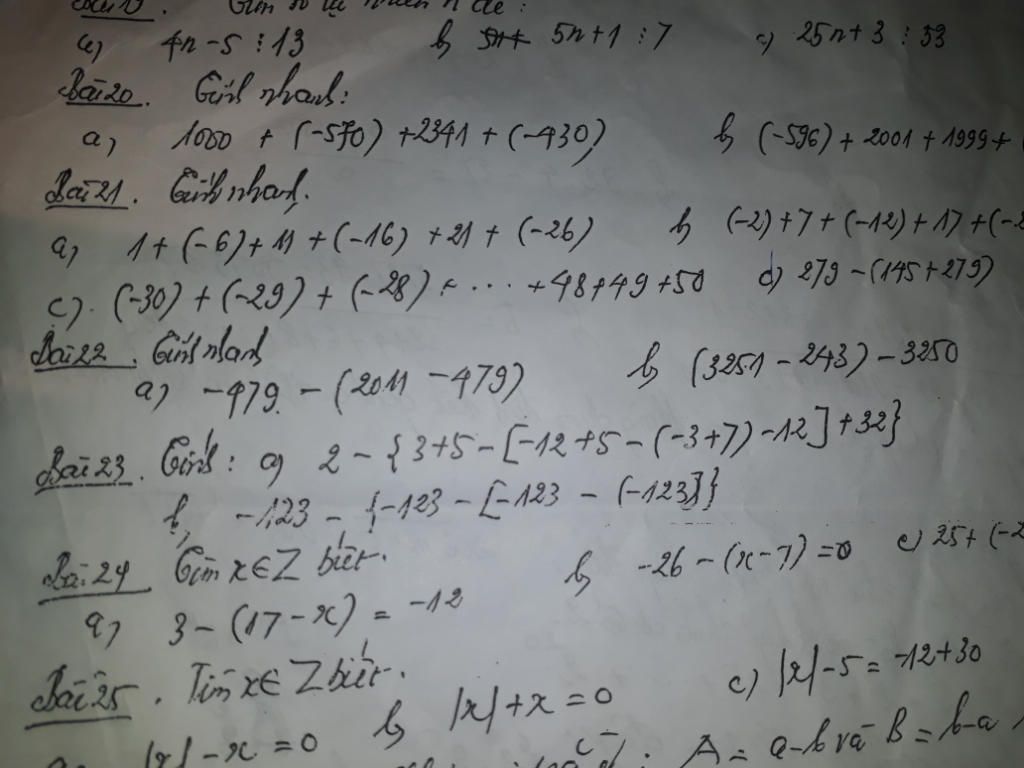 Bài 19. Tìm số tự nhiên n để:
a) 4n-5 ⋮ 13 b) 5n+1 ⋮ 7 c) 25n+3 ⋮ 53
Bài 20. Tính nhanh:
a) 1080 + (-570) + 2341 + (-430) b) (-596) + 2001 + 1999 +
Bài 21. Tính nhanh.
a) 1 + (-6) + 11 + (-16) + 21 + (-26) b) (-2) + 7 + (-12) + 17 + (-2
c) (-30) + (-29) + (-28) + ... + 48 + 49 + 50 d) 279 - (145 + 279)
Bài 22. Tính nhanh
a) -479 - (2011 - 479) b) (3251 - 243) - 3250
Bài 23. Tính: a) 2 - {3+5 - [-12+5 - (-3+7) - 12] + 32}
b, -123 - {-123 - [-123 - (-123)]}
Bài 24 Tìm x∈Z biết.
a) 3 - (17 - x) = -12 b) -26 - (x-7) = 0 c) 25 + (-2
Bài 25. Tìm x∈Z biết.
|x| - x = 0 b) |x| + x = 0 c) |x| - 5 = -12+30
A = a-b và B = b-a